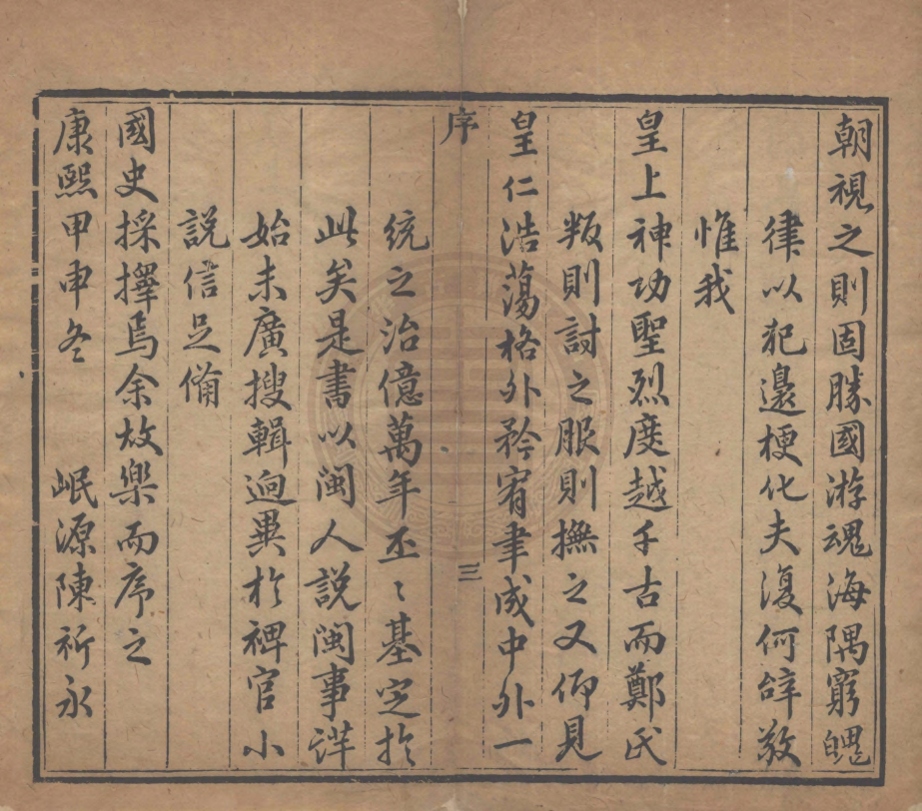 朝視之則固勝國游魂海隅窮魄
律以犯邊梗化夫復何辭敬
惟我
皇上神功聖烈度越千古而鄭氏
叛則討之服則撫之又仰見
皇仁浩蕩格外矜宥聿成中外一
序
三
統之治億萬年丕丕基定於
此矣是書以閩人說閩事詳
始末廣搜輯迥異於稗官小
說信足備
國史採擇焉余故樂而序之
康熙甲申冬 岷源陳祈永